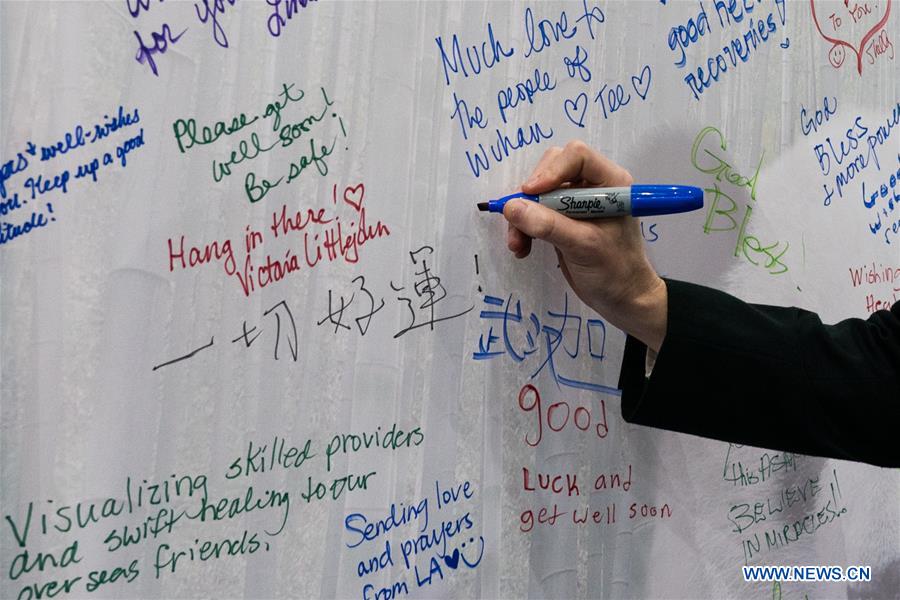 for you
Much love to
the people of
Wuhan ♡ Tee ♡
good
recoveries!
To You!
well-wishes
you. Keep up a good
Please get
well soon!
Be safe!
Hang in there! ♡
Victoria Littlejohn
一切好運!
Sharpie
武汉加
God
Bless
God
Bless
& more power
Good
Wishing
good
Luck and
get well soon
Visualizing skilled providers
and swift healing to our
overseas friends.
Sending love
and prayers
from LA
this ASAP
BELIEVE!!
IN MIRACLES!
WWW.NEWS.CN